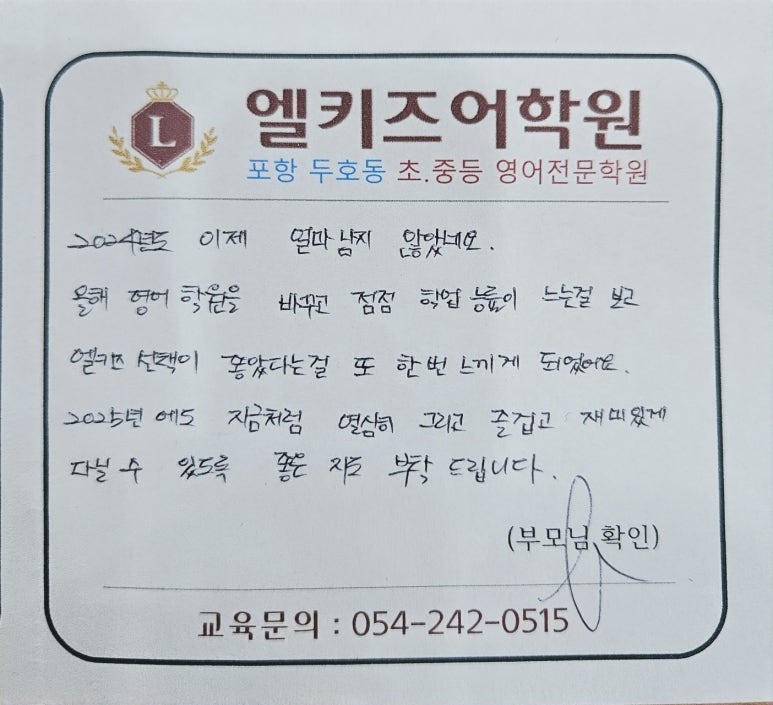 L
엘키즈어학원
포항 두호동 초.중등 영어전문학원
2024년도 이제 얼마 남지 않았네요.
올해 영어 학원을 바꾸고 점점 학업 능률이 느는걸 보고
엘키즈 선택이 좋았다는걸 또 한번 느끼게 되었어요.
2025년에도 지금처럼 열심히 그리고 즐겁고 재미있게
다닐 수 있도록 좋은 지도 부탁 드립니다.
(부모님 확인)
교육문의 : 054-242-0515